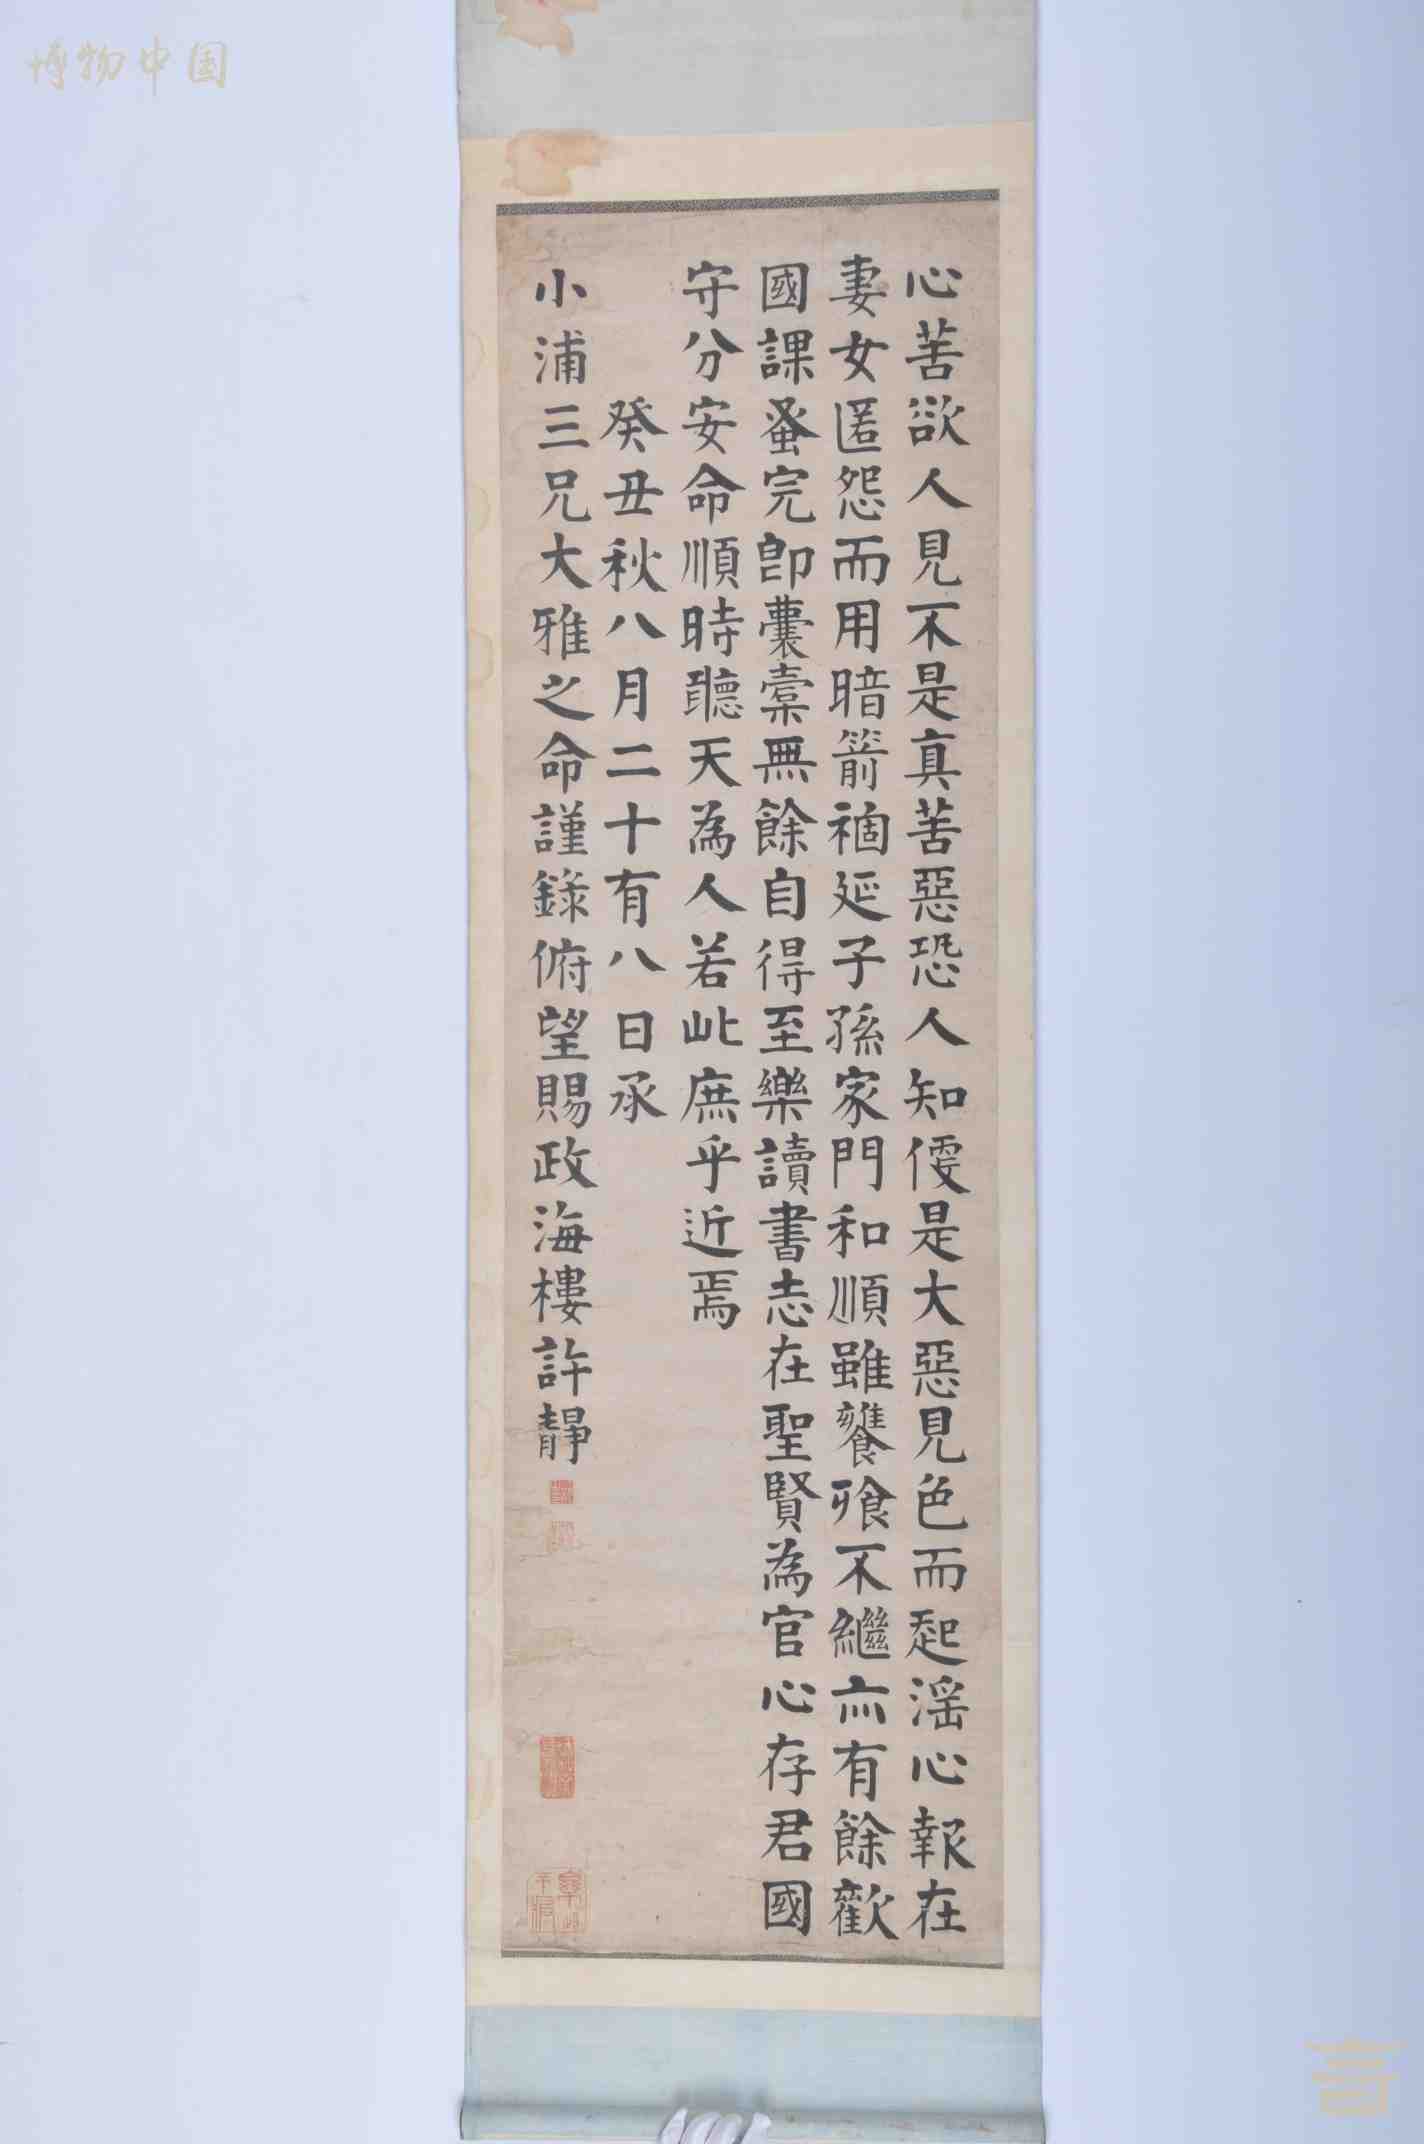 博物中国
心苦欲人見不是真苦惡恐人知便是大惡見色而起淫心報在
妻女匿怨而用暗箭禍延子孫家門和順雖饔飧不繼亦有餘歡
國課蚤完卽囊橐無餘自得至樂讀書志在聖賢為官心存君國
守分安命順時聽天為人若此庶乎近焉
癸丑秋八月二十有八日承
小浦三兄大雅之命謹錄俯望賜政海樓許靜